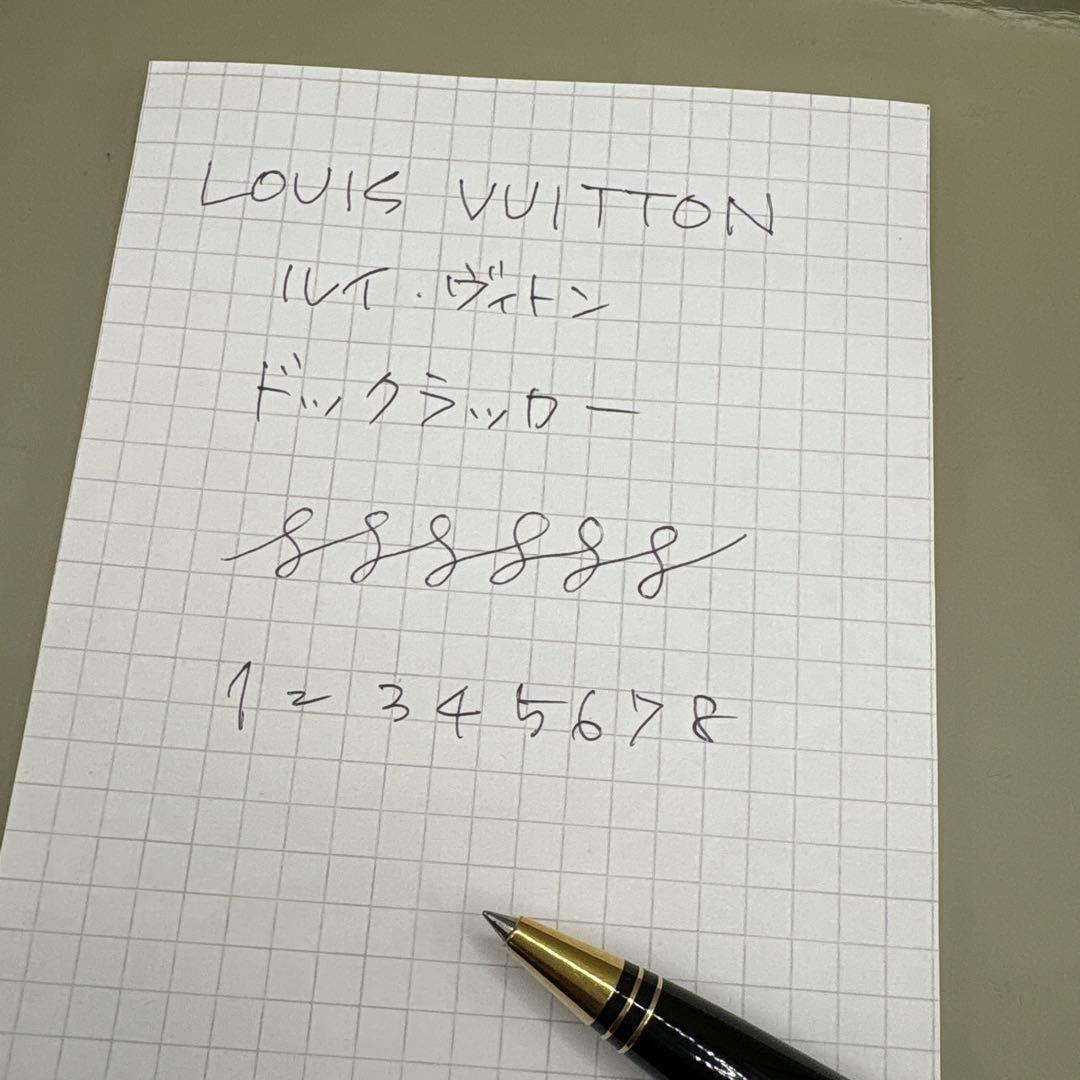 LOUIS VUITTON
ルイ・ヴィトン
ドックラッロー
1 2 3 4 5 6 7 8